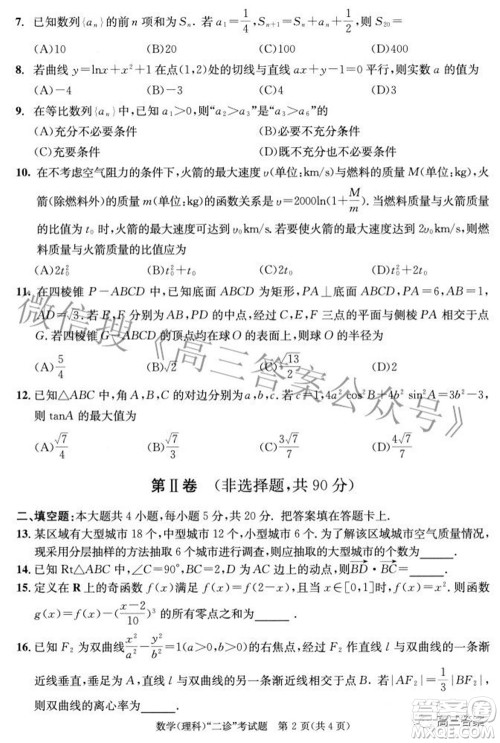 7. 已知数列{aₙ}的前n项和为Sₙ. 若a₁=1/4, Sₙ₊₁=Sₙ+aₙ+1/2, 则S₂₀=
(A)10 (B)20 (C)100 (D)400
8. 若曲线y=lnx+x²+1在点(1,2)处的切线与直线ax+y-1=0平行, 则实数a的值为
(A)-4 (B)-3 (C)4 (D)3
9. 在等比数列{aₙ}中, 已知a₁>0, 则“a₂>a₃”是“a₃>a₆”的
(A)充分不必要条件 (B)必要不充分条件
(C)充要条件 (D)既不充分也不必要条件
10. 在不考虑空气阻力的条件下, 火箭的最大速度v(单位:km/s)与燃料的质量M(单位:kg), 火
箭(除燃料外)的质量m(单位:kg)的函数关系是v=2000ln(1+M/m). 当燃料质量与火箭质量
的比值为t₀时, 火箭的最大速度可达到v₀km/s. 若要使火箭的最大速度达到2v₀km/s, 则燃
料质量与火箭质量的比值应为
(A)2t₀² (B)t₀²+t₀ (C)2t₀ (D)t₀²+2t₀
11. 在四棱锥P-ABCD中, 已知底面ABCD为矩形, PA⊥底面ABCD, PA=6, AB=1,
AD=√3. 若E, F分别为AB, CD的中点, 经过C, E, F三点的平面与侧棱PA相交于点
G. 若四棱锥G-ABCD的顶点均在球O的表面上, 则球O的半径为
(A)5/4 (B)√13/2 (C)√2 (D)2
12. 已知△ABC中, 角A, B, C的对边分别为a, b, c. 若c=1, 4a²cos²B+4b²sin²A=3b²-3,
则tanA的最大值为
(A)√7/4 (B)√7/3 (C)3√7/7 (D)4√7/7
第Ⅱ卷 (非选择题, 共90分)
二、填空题: 本大题共4小题, 每小题5分, 共20分. 把答案填在答题卡上.
13. 某区域有大型城市18个, 中型城市12个, 小型城市6个. 为了解该区域城市空气质量情况,
现采用分层抽样的方法抽取6个城市进行调查, 则应抽取的大型城市的个数为
14. 已知Rt△ABC中, ∠C=90°, BC=2, D为AC边上的动点, 则BD·BC=
15. 定义在R上的奇函数f(x)满足f(x)=f(2-x), 且当x∈[0,1]时, f(x)=x². 则函数
g(x)=f(x)-((x-2)/10)³的所有零点之和为
16. 已知F₂为双曲线x²/a²-y²/b²=1(a>0,b>0)的右焦点, 经过F₂作直线l与双曲线的一条渐
近线垂直, 垂足为A, 直线l与双曲线的另一条渐近线在第二象限的交点为B. 若|AF₂|=1/3|BF₂|,
则双曲线的离心率为
数学(理科)“二诊”考试题 第2页(共4页)
微信搜《高三答案公众号》
高三答案